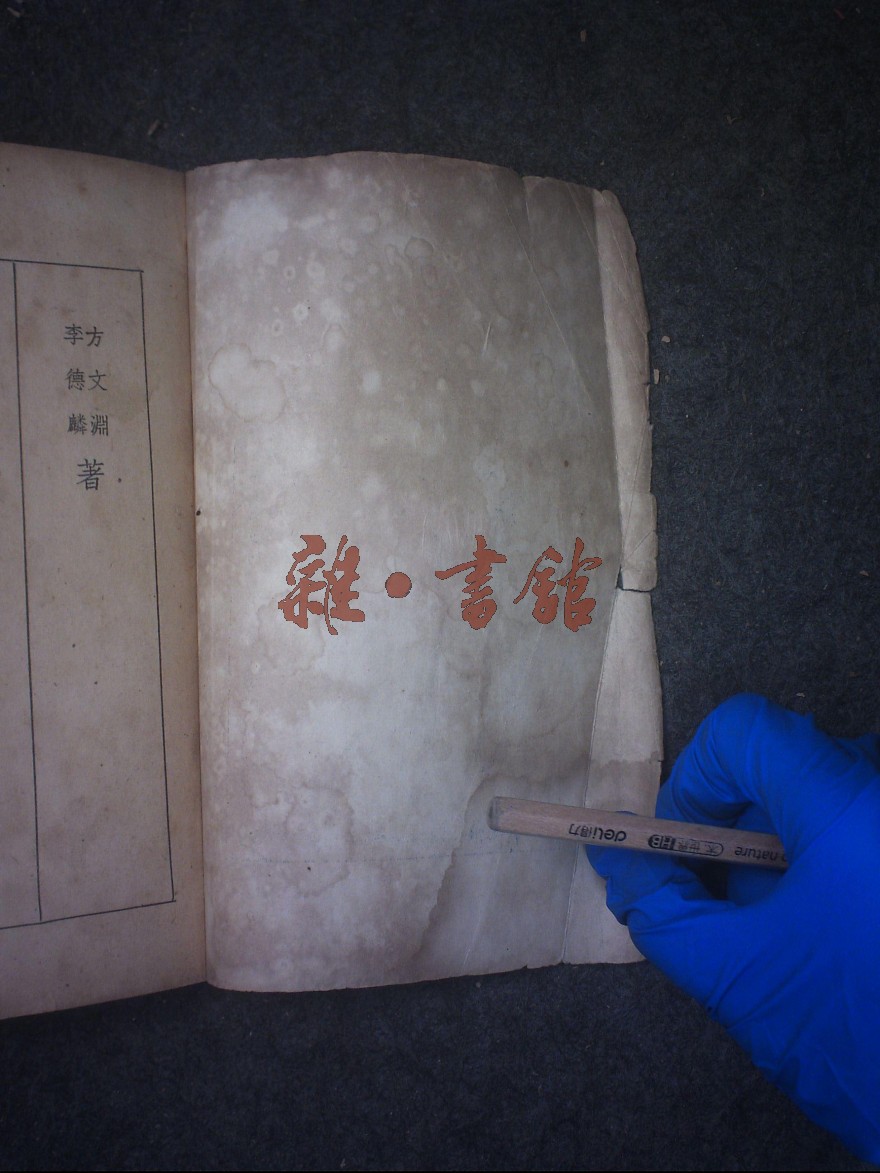 方文淵
李德麟
著
雜•書館
deli得力
HB
nature